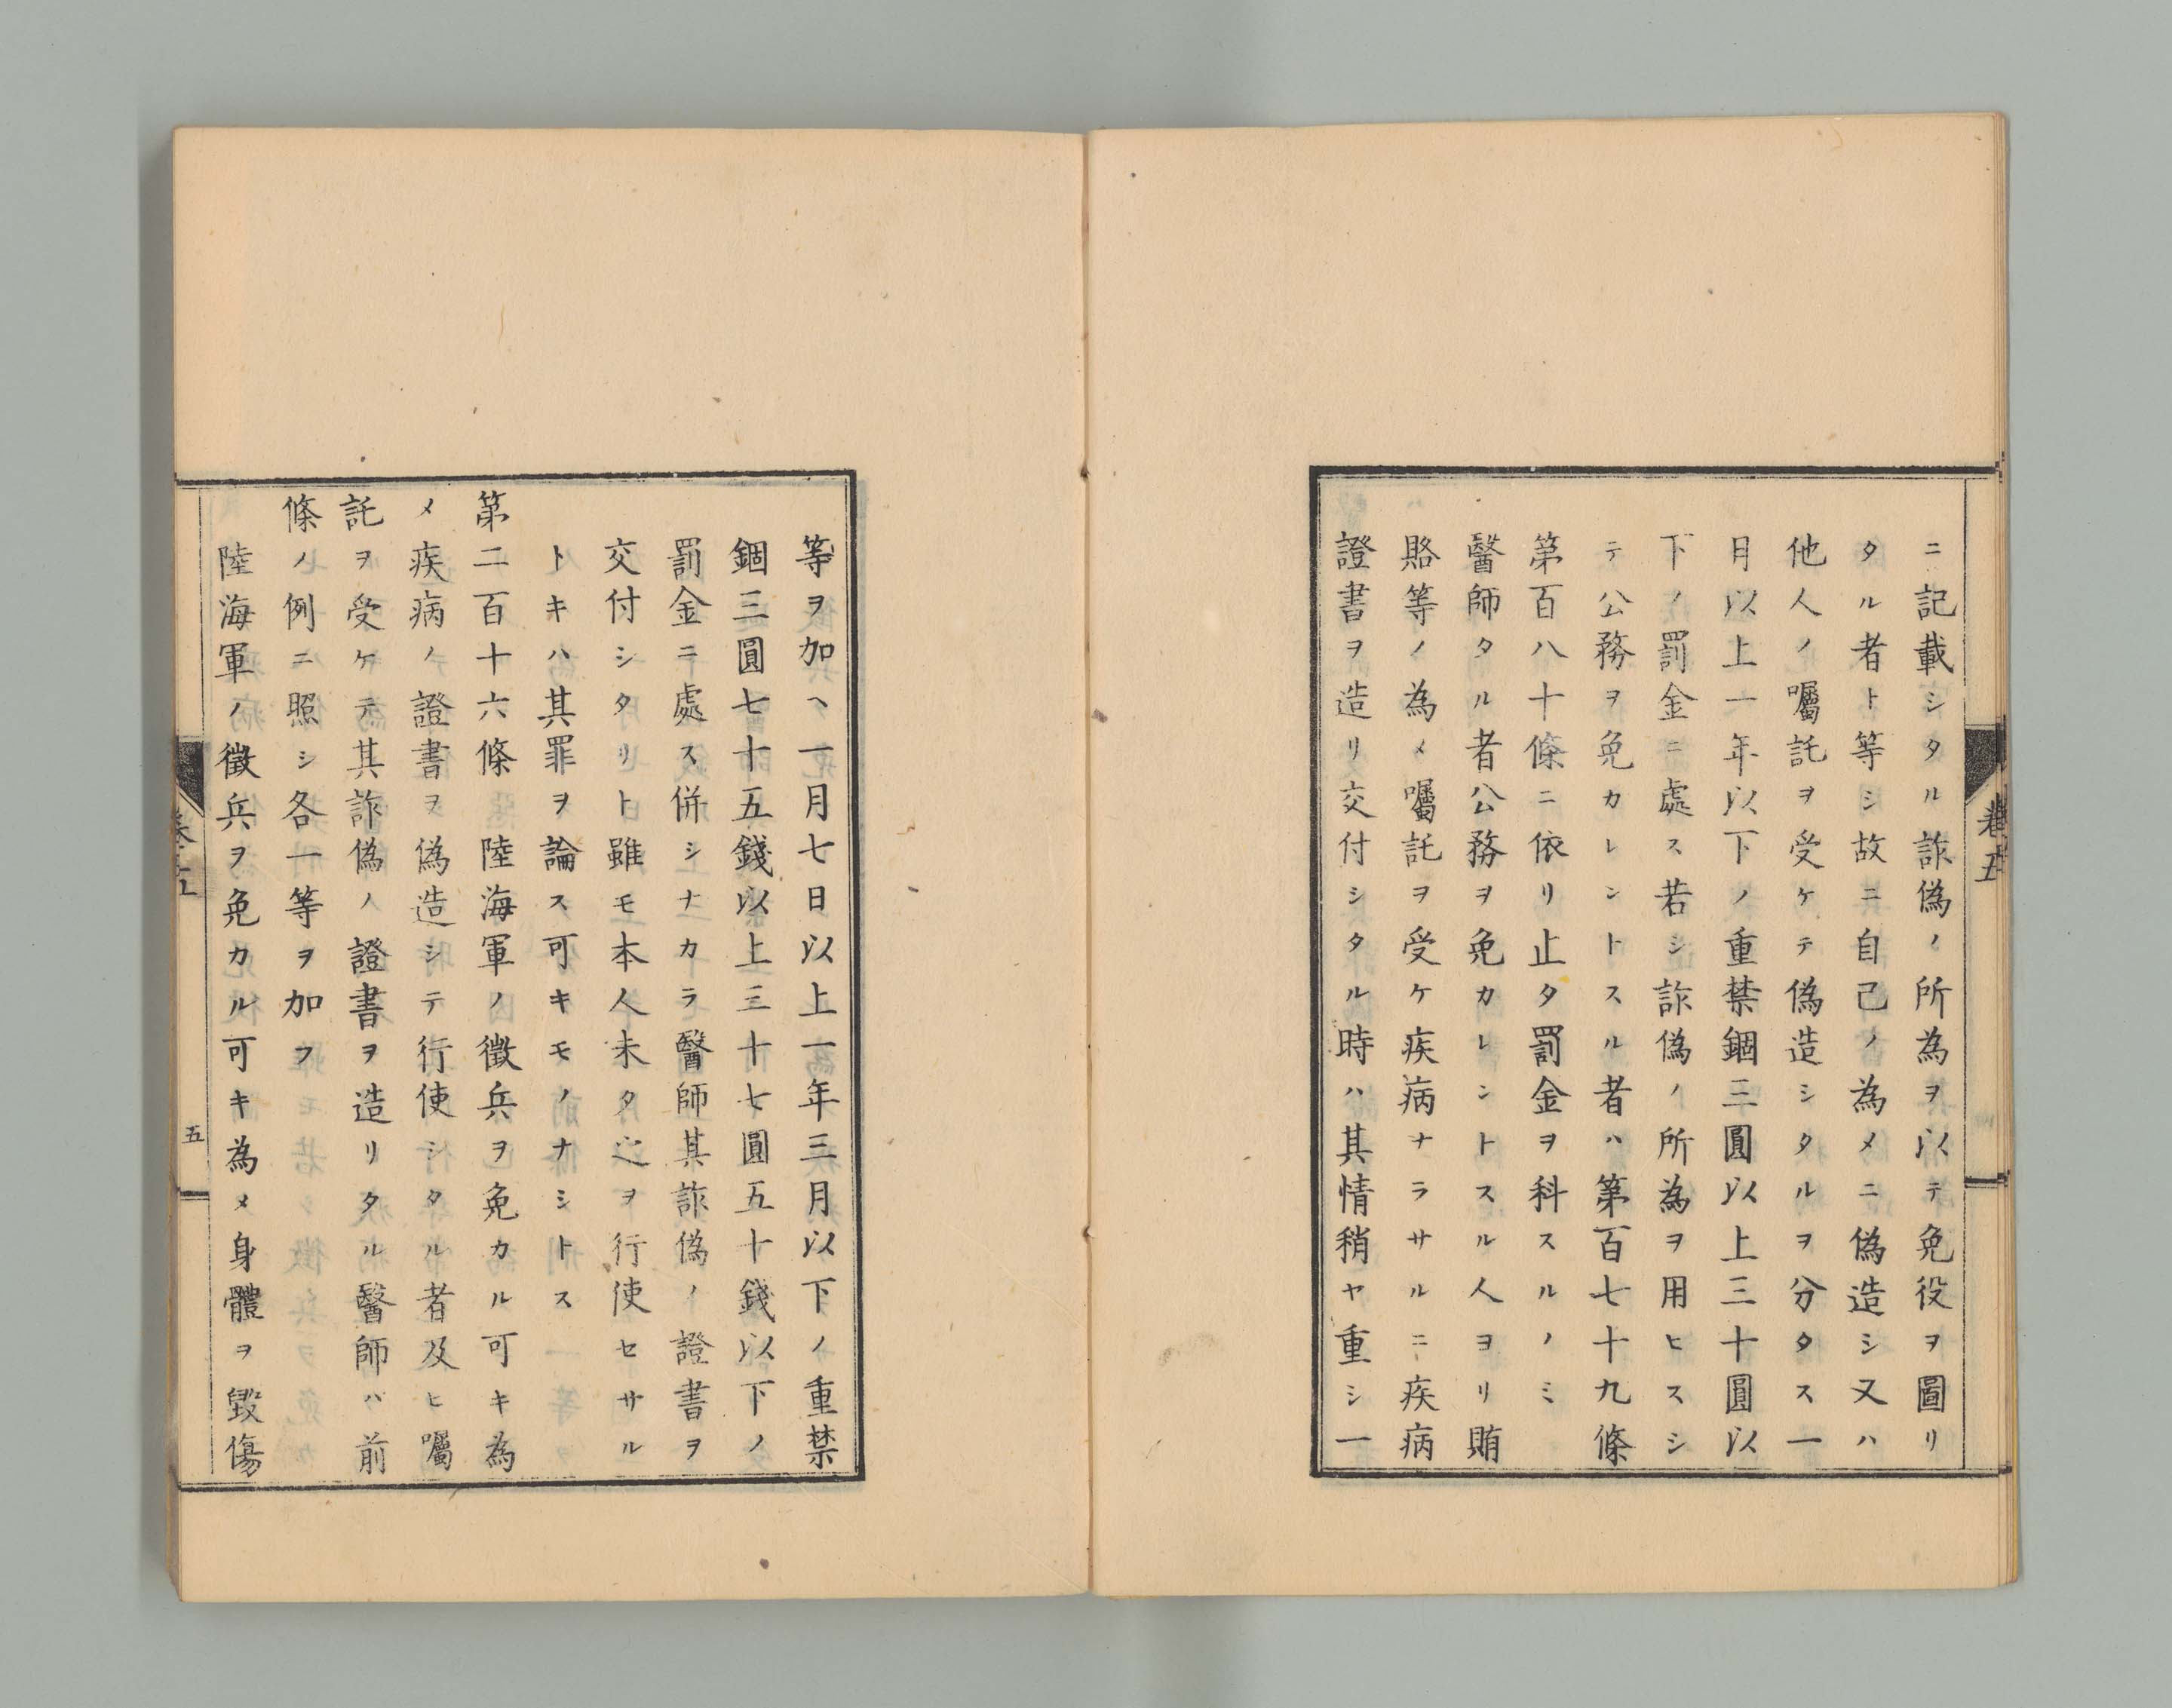 ニ記載シタル詐偽ノ所為ヲ以テ免役ヲ圖リ
タル者ト等シ故ニ自己ノ為メニ偽造シ又ハ
他人ノ囑託ヲ受ケテ偽造シタルヲ分タス一
月以上一年以下ノ重禁錮三圓以上三十圓以
下ノ罰金ニ處ス若シ詐偽ノ所為ヲ用ヒスシ
テ公務ヲ免カレントスル者ハ第百七十九條
第百八十條ニ依リ止タ罰金ヲ科スルノミ
醫師タル者公務ヲ免カレントスル人ヨリ賄
賂等ノ為メ囑託ヲ受ケ疾病ナラサルニ疾病
證書ヲ造リ交付シタル時ハ其情稍ヤ重シ一
卷五
等ヲ加ヘ一月七日以上一年三月以下ノ重禁
錮三圓七十五錢以上三十七圓五十錢以下ノ
罰金ニ處ス併シナカラ醫師其詐偽ノ證書ヲ
交付シタリト雖モ本人未タ之ヲ行使セサル
トキハ其罪ヲ論ス可キモノナシトス
第二百十六條 陸海軍ノ徴兵ヲ免カル可キ為
メ疾病ノ證書ヲ偽造シテ行使シタル者及ヒ囑
託ヲ受ケテ其詐偽ノ證書ヲ造リタル醫師ハ前
條ノ例ニ照シ各一等ヲ加フ
陸海軍ノ徴兵ヲ免カル可キ為メ身體ヲ毀傷
卷五
五